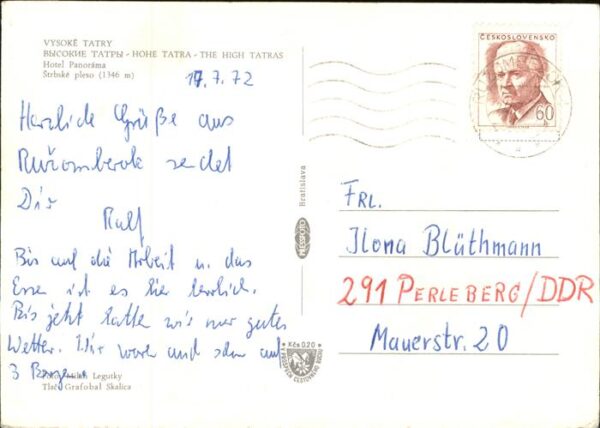 VYSOKÉ TATRY
ВЫСОКИЕ ТАТРЫ - HOHE TATRA - THE HIGH TATRAS
Hotel Panoráma
Štrbské pleso (1346 m)
17.7.72
Herzliche Grüße aus
Ružomberok sendet
Dir
Ralf
Bis auf die Arbeit u. das
Essen ist es hier herrlich.
Bis jetzt hatte wir nur gutes
Wetter. Wir waren auch schon auf
3 Bergen.
Foto: Milan Legutky
Tlač: Grafobal Skalica
Bratislava
PRESSFOTO
Kčs 0,20
ČESKOSLOVENSKO
60
FRL.
Ilona Blüthmann
291 PERLEBERG/DDR
Mauerstr. 20